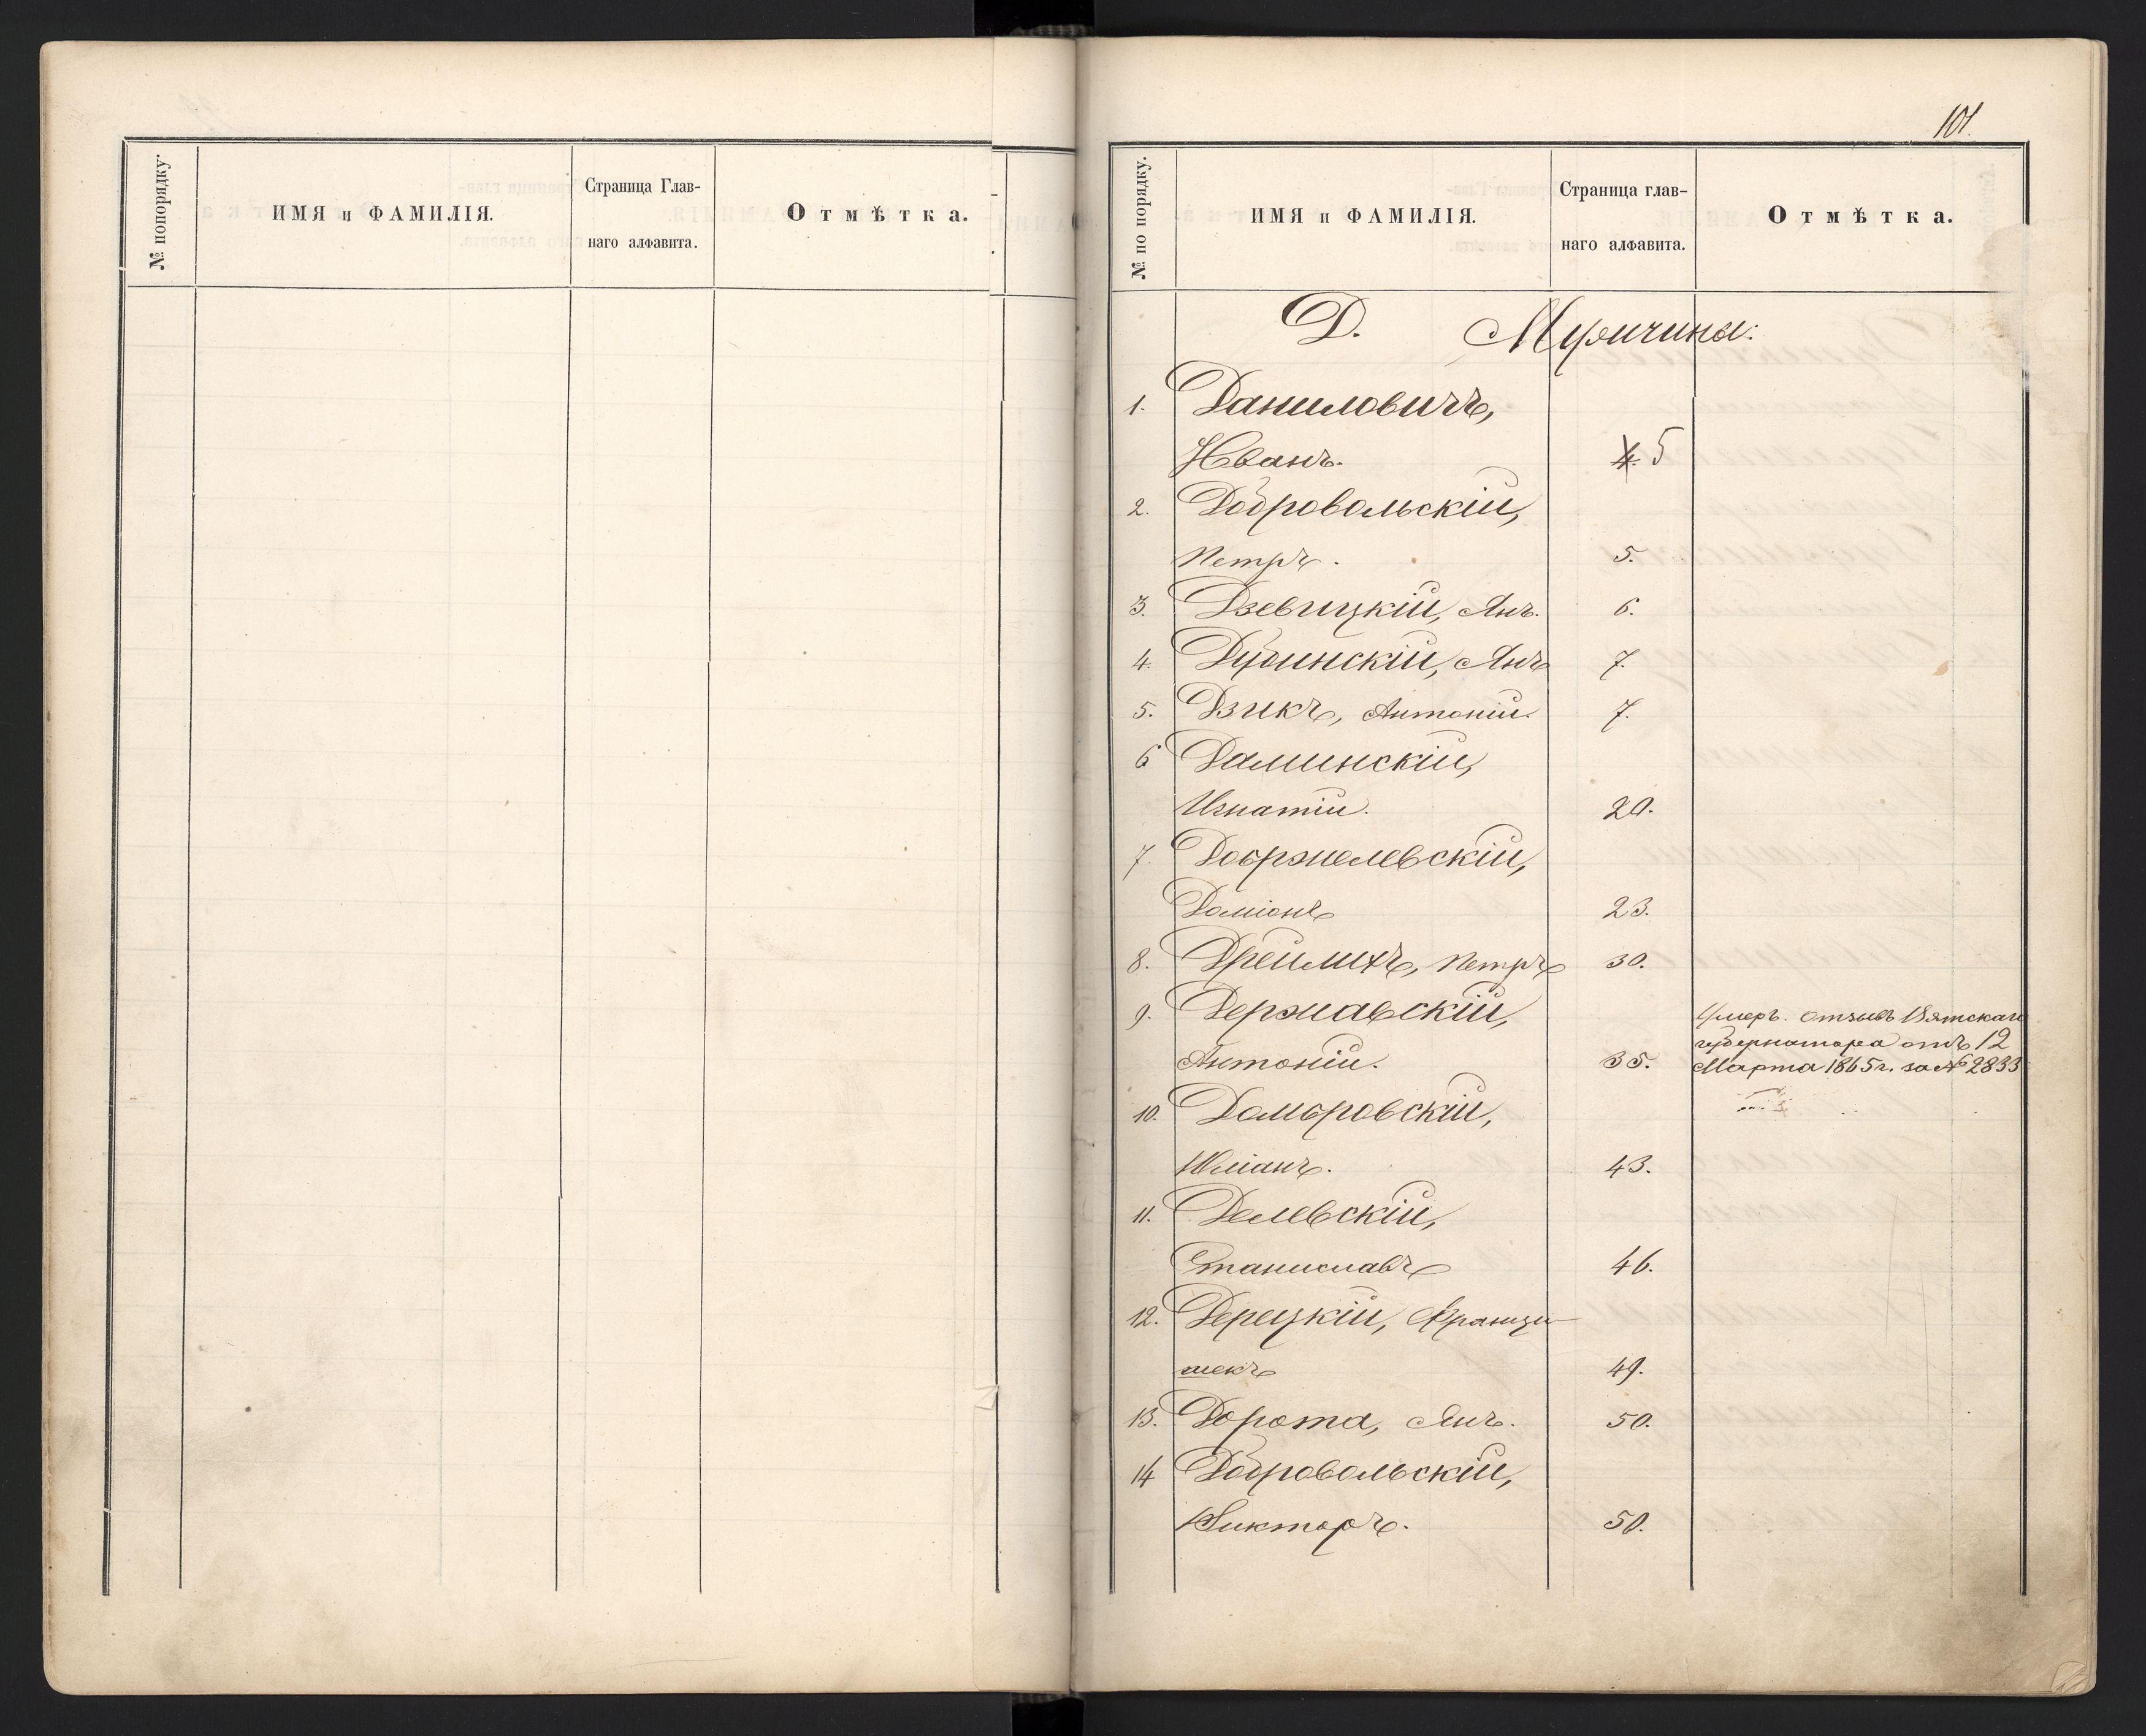 № попорядку
ИМЯ и ФАМИЛІЯ.
Страница Глав-
наго алфавита.
Отмѣтка.
101.
№ по порядку.
ИМЯ и ФАМИЛІЯ.
Страница глав-
наго алфавита.
Отмѣтка.
Д. Мужчины:
1. Даниловичъ,
Иванъ. 4. 5
2. Добровольскій,
Петръ. 5.
3. Дзевицкій, Янъ. 6.
4. Дубинскій, Янъ 7.
5. Дзикъ, Антоній. 7.
6 Далинскій,
Игнатій. 20.
7. Добржелевскій,
Доміонъ 23.
8. Дрейлихъ, Петръ 30.
9. Державскій,
Антоній. 35.
Умеръ. отзывъ Вятскаго
губернатора отъ 12
Марта 1865 г. за № 2833
10. Домбровскій,
Юліанъ. 43.
11. Делевскій,
Станиславъ 46.
12. Дерецкій, Франци-
шекъ 49.
13. Дорота, Янъ. 50.
14 Добровольскій,
Викторъ. 50.